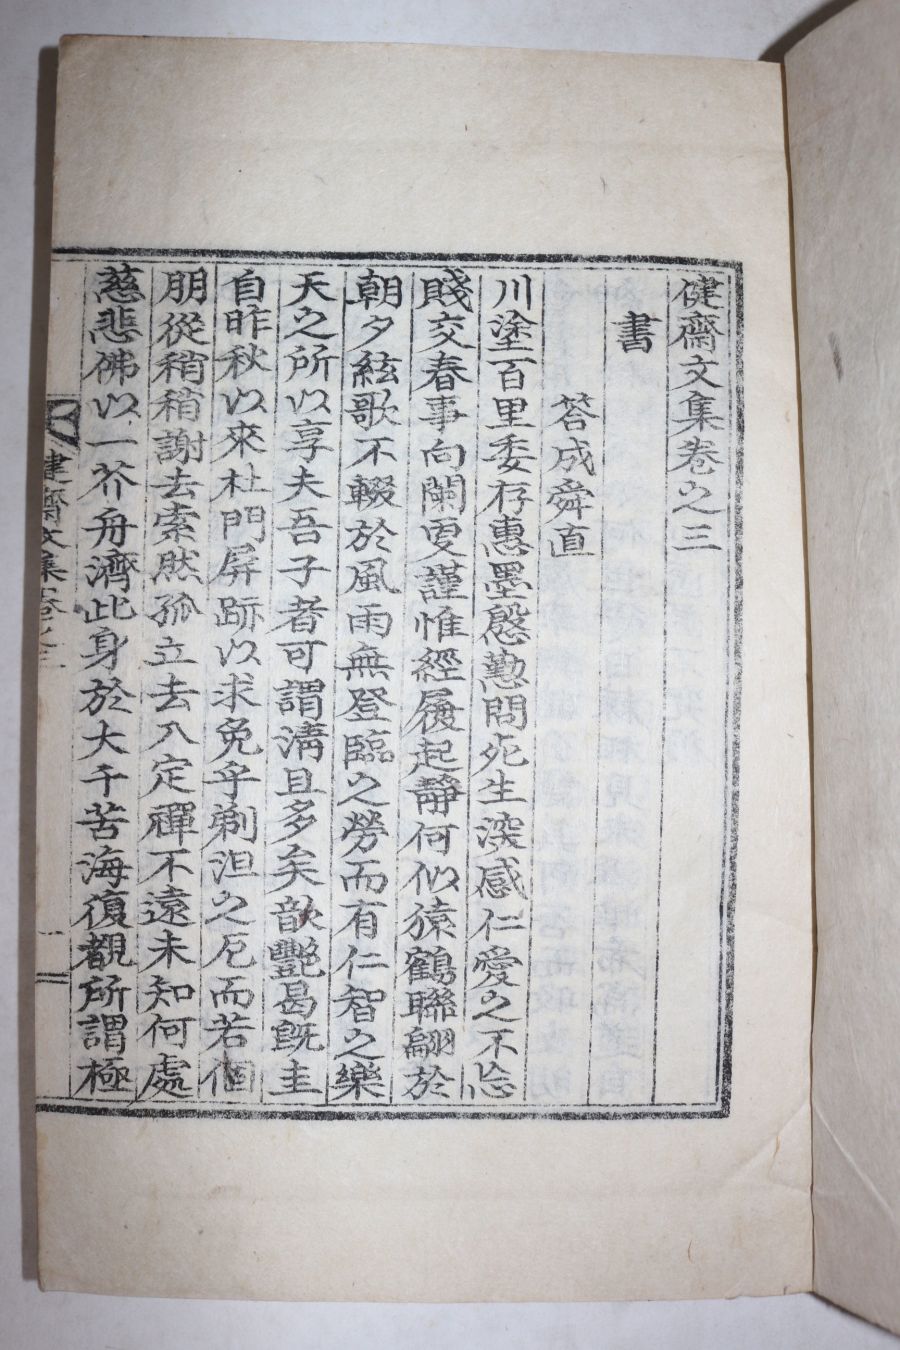 健齋文集卷之三
書
答成舜直
川塗百里委存惠墨慇懃問死生深感仁愛之不忘
賤交春事向闌更謹惟經履起靜何似猿鶴聯翩於
朝夕絃歌不輟於風雨無登臨之勞而有仁智之樂
天之所以享夫吾子者可謂淸且多矣歆艷曷旣圭
自昨秋以來杜門屛跡以求免乎剃沮之厄而若個
朋從稍稍謝去索然孤立去入定禪不遠未知何處
慈悲佛以一芥舟濟此身於大千苦海復觀所謂極
健齋文集卷之三
一